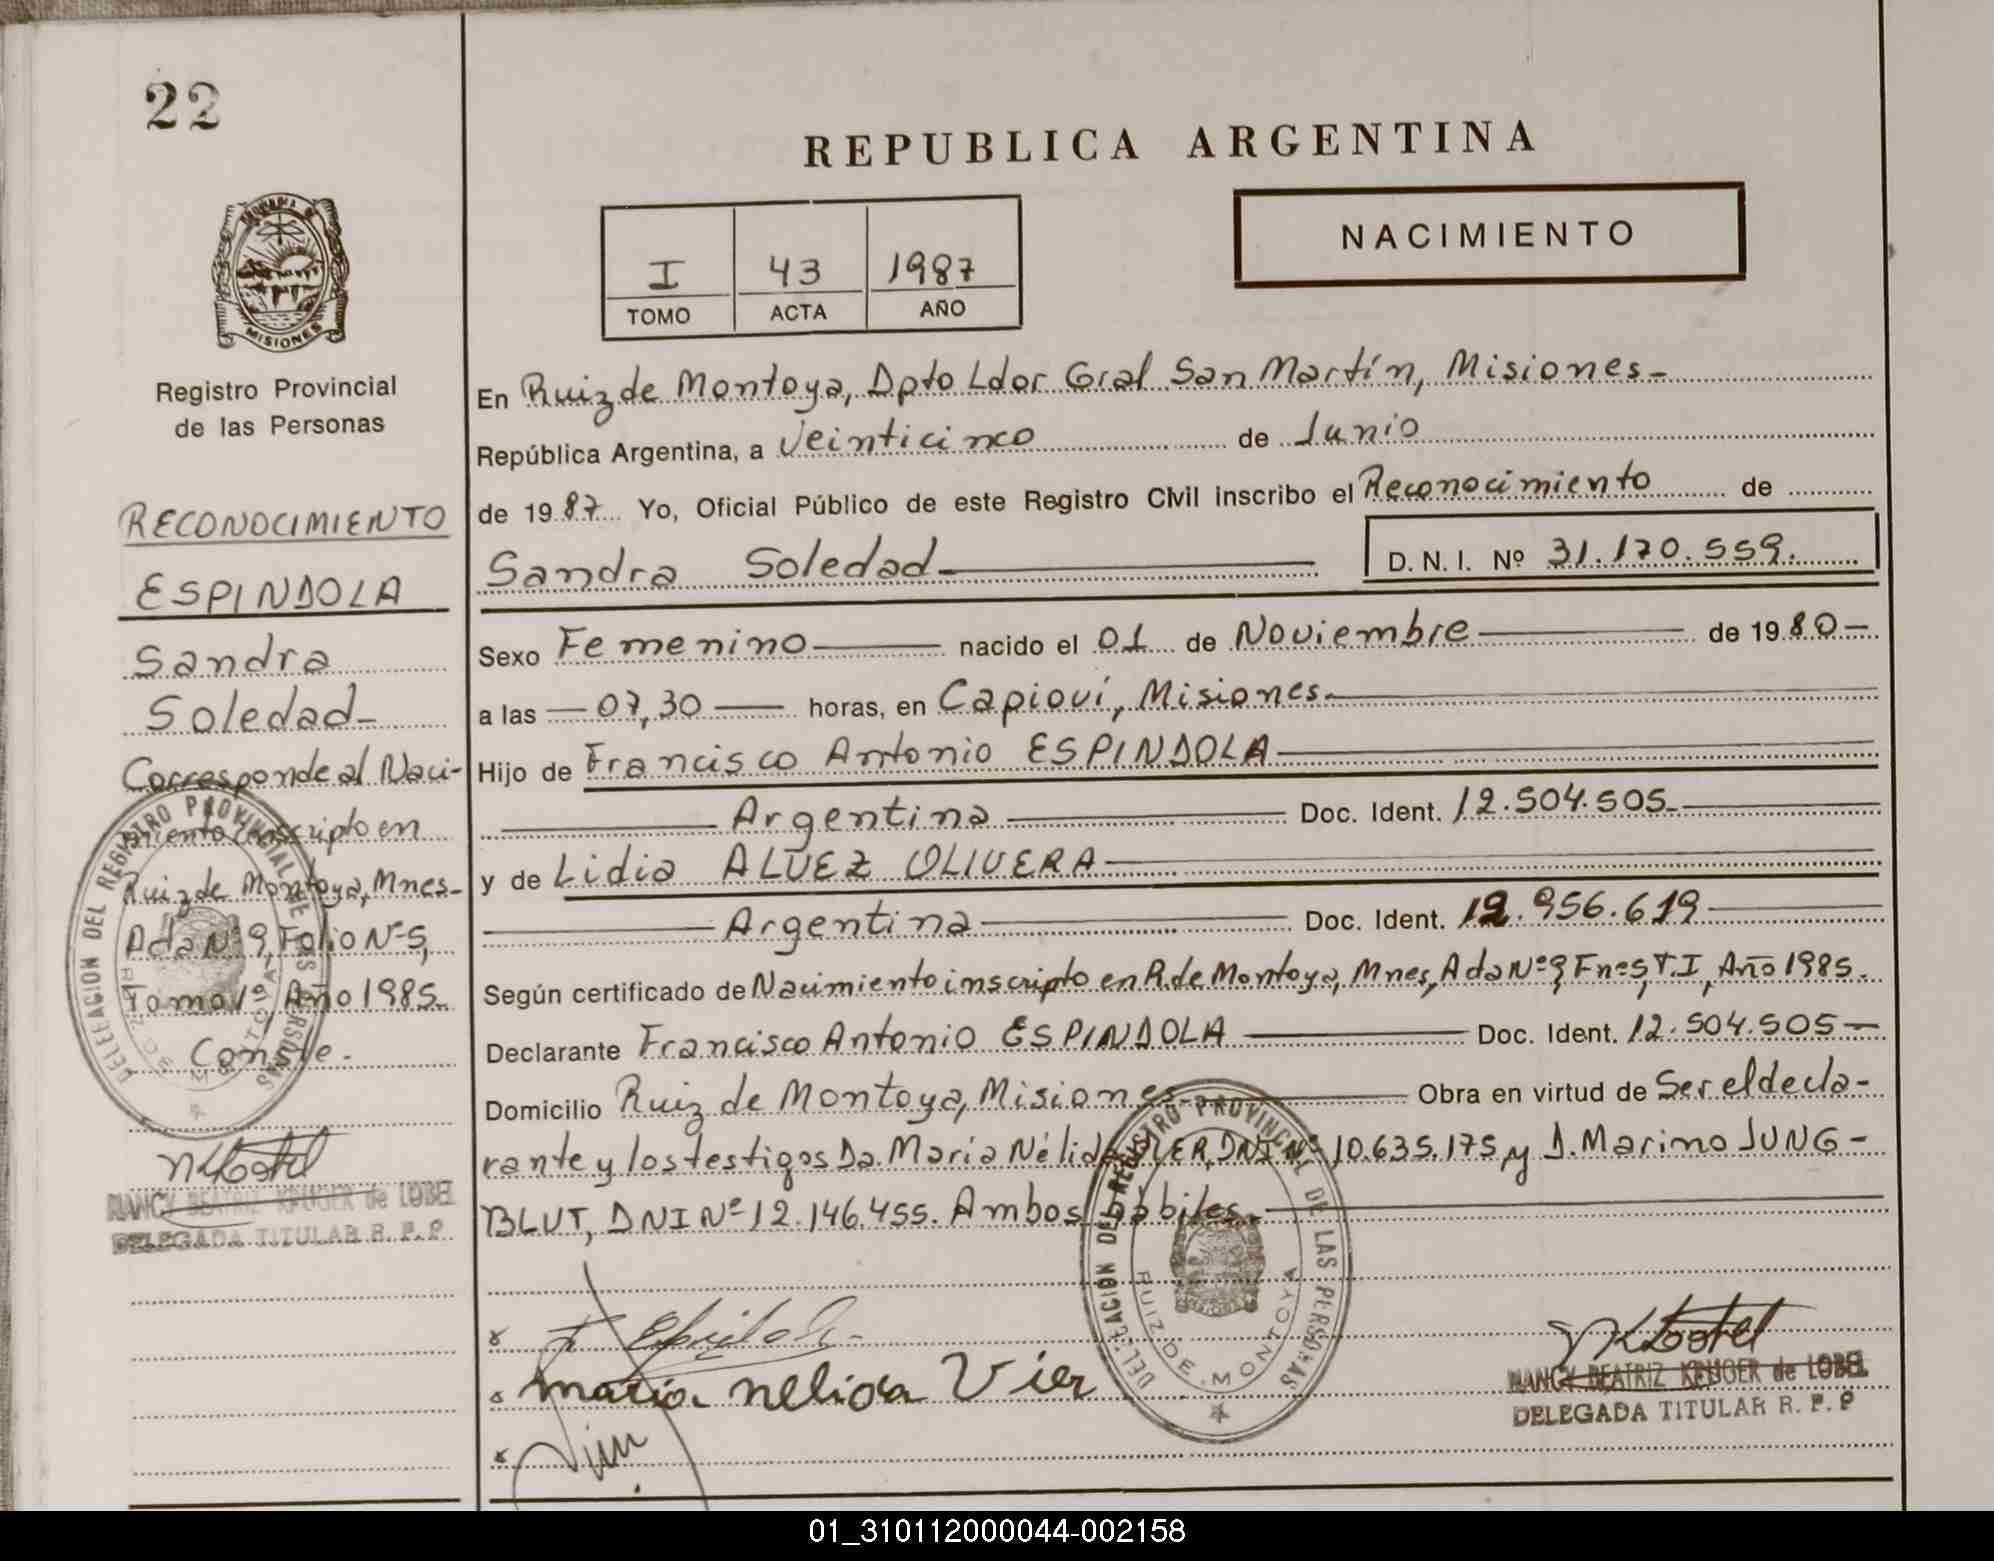 22
PROVINCIA DE
MISIONES
Registro Provincial
de las Personas
RECONOCIMIENTO
ESPINDOLA
Sandra
Soledad-
Corresponde al Naci-
miento inscripto en
Ruiz de Montoya, Mnes-
Acta Nº 9, Folio Nº 5,
Tomo 1º, Año 1985.
Conste.-
DELEGACION DEL REGISTRO PROVINCIAL DE LAS PERSONAS
NANCY BEATRIZ KRUGER de LOBEL
DELEGADA TITULAR R. P. P.
REPUBLICA ARGENTINA
NACIMIENTO
I 43 1987
TOMO ACTA AÑO
En Ruiz de Montoya, Dpto Ldor Gral San Martín, Misiones-
República Argentina, a Veinticinco de Junio
de 1987 Yo, Oficial Público de este Registro Civil inscribo el Reconocimiento de
Sandra Soledad- D. N. I. Nº 31.170.559.
Sexo Femenino nacido el 01 de Noviembre de 1980-
a las -07,30- horas, en Capioví, Misiones.-
Hijo de Francisco Antonio ESPINDOLA
Argentina Doc. Ident. 12.504.505.-
y de Lidia ALVEZ OLIVERA
Argentina Doc. Ident. 12.956.619
Según certificado de Nacimiento inscripto en R. de Montoya, Mnes, Acta Nº 9, Fº nº 5, T. I, Año 1985.
Declarante Francisco Antonio ESPINDOLA Doc. Ident. 12.504.505-
Domicilio Ruiz de Montoya, Misiones Obra en virtud de Ser el decla-
rante y los testigos Da. María Nélida VIER, DNI Nº 10.635.175 y D. Marino JUNG-
BLUT, DNI Nº 12.146.455. Ambos hábiles.-
DELEGACION DEL REGISTRO PROVINCIAL DE LAS PERSONAS
RUIZ DE MONTOYA
maria nelida Vier
NANCY BEATRIZ KRUGER de LOBEL
DELEGADA TITULAR R. P. P
01_310112000044-002158